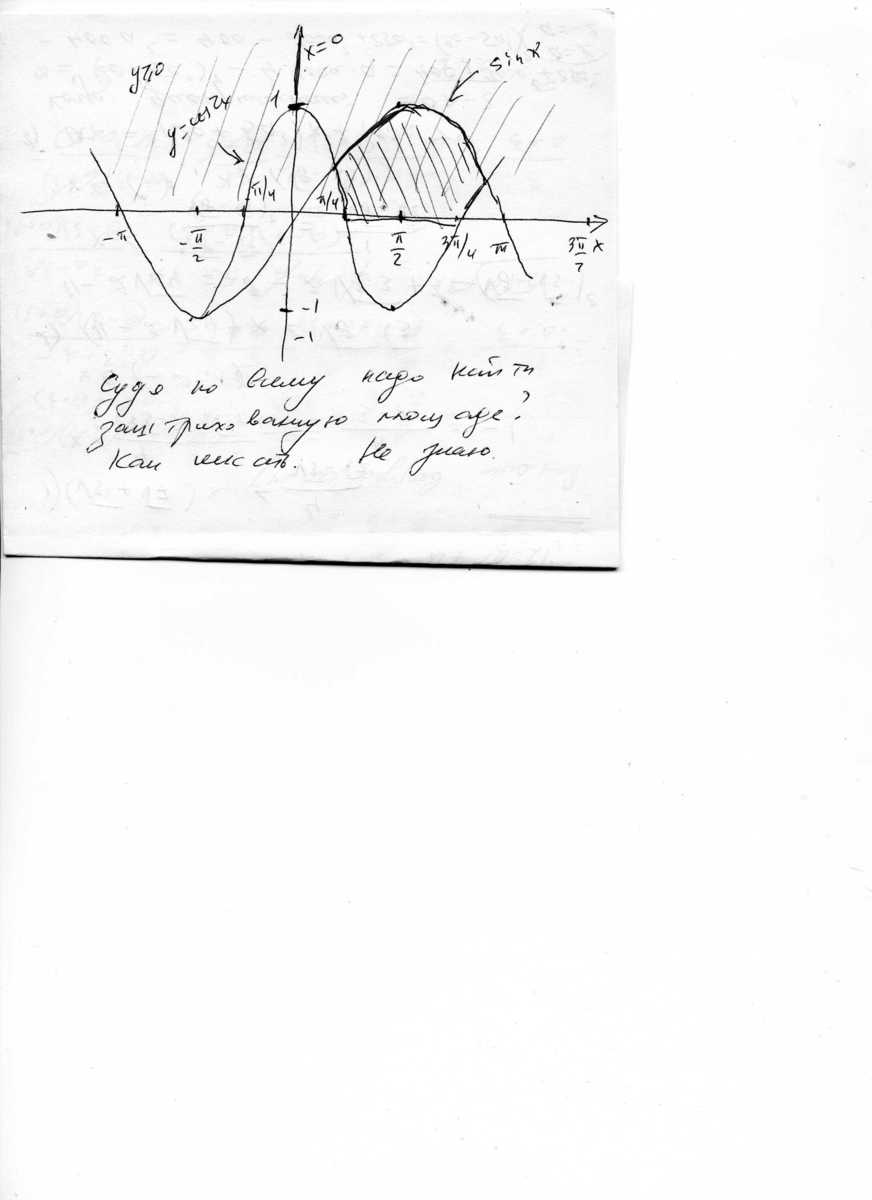 x=0
y≥0
sin x
1
y=cos2x
-π/4
π/4
-π
-π/2
π/2
3π/4
π
3π/2
x
-1
-1
Судя по всему надо найти
заштрихованную площадь?
Как искать. Не знаю.